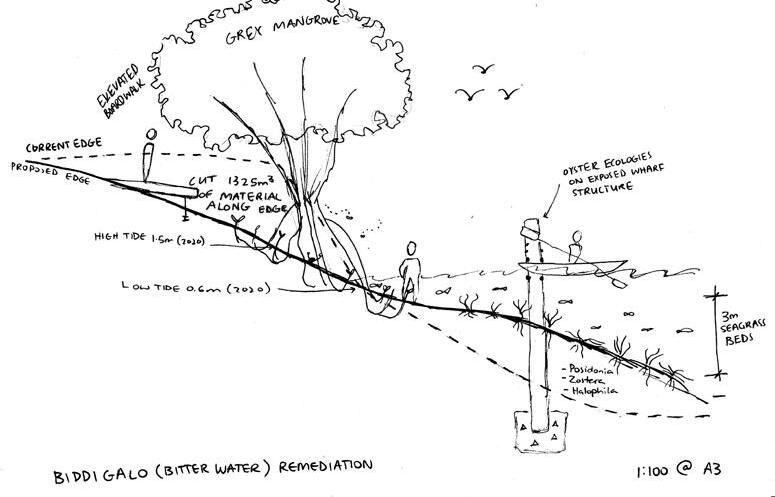 GREY MANGROVE
ELEVATED
BOARDWALK
CURRENT EDGE
PROPOSED EDGE
CUT 1325m³
OF MATERIAL
ALONG EDGE
HIGH TIDE 1.5m (2020)
LOW TIDE 0.6m (2020)
OYSTER ECOLOGIES
ON EXPOSED WHARF
STRUCTURE
3m
SEAGRASS
BEDS
- Posidonia
- Zostera
- Halophila
BIDDIGALO (BITTER WATER) REMEDIATION
1:100 @ A3